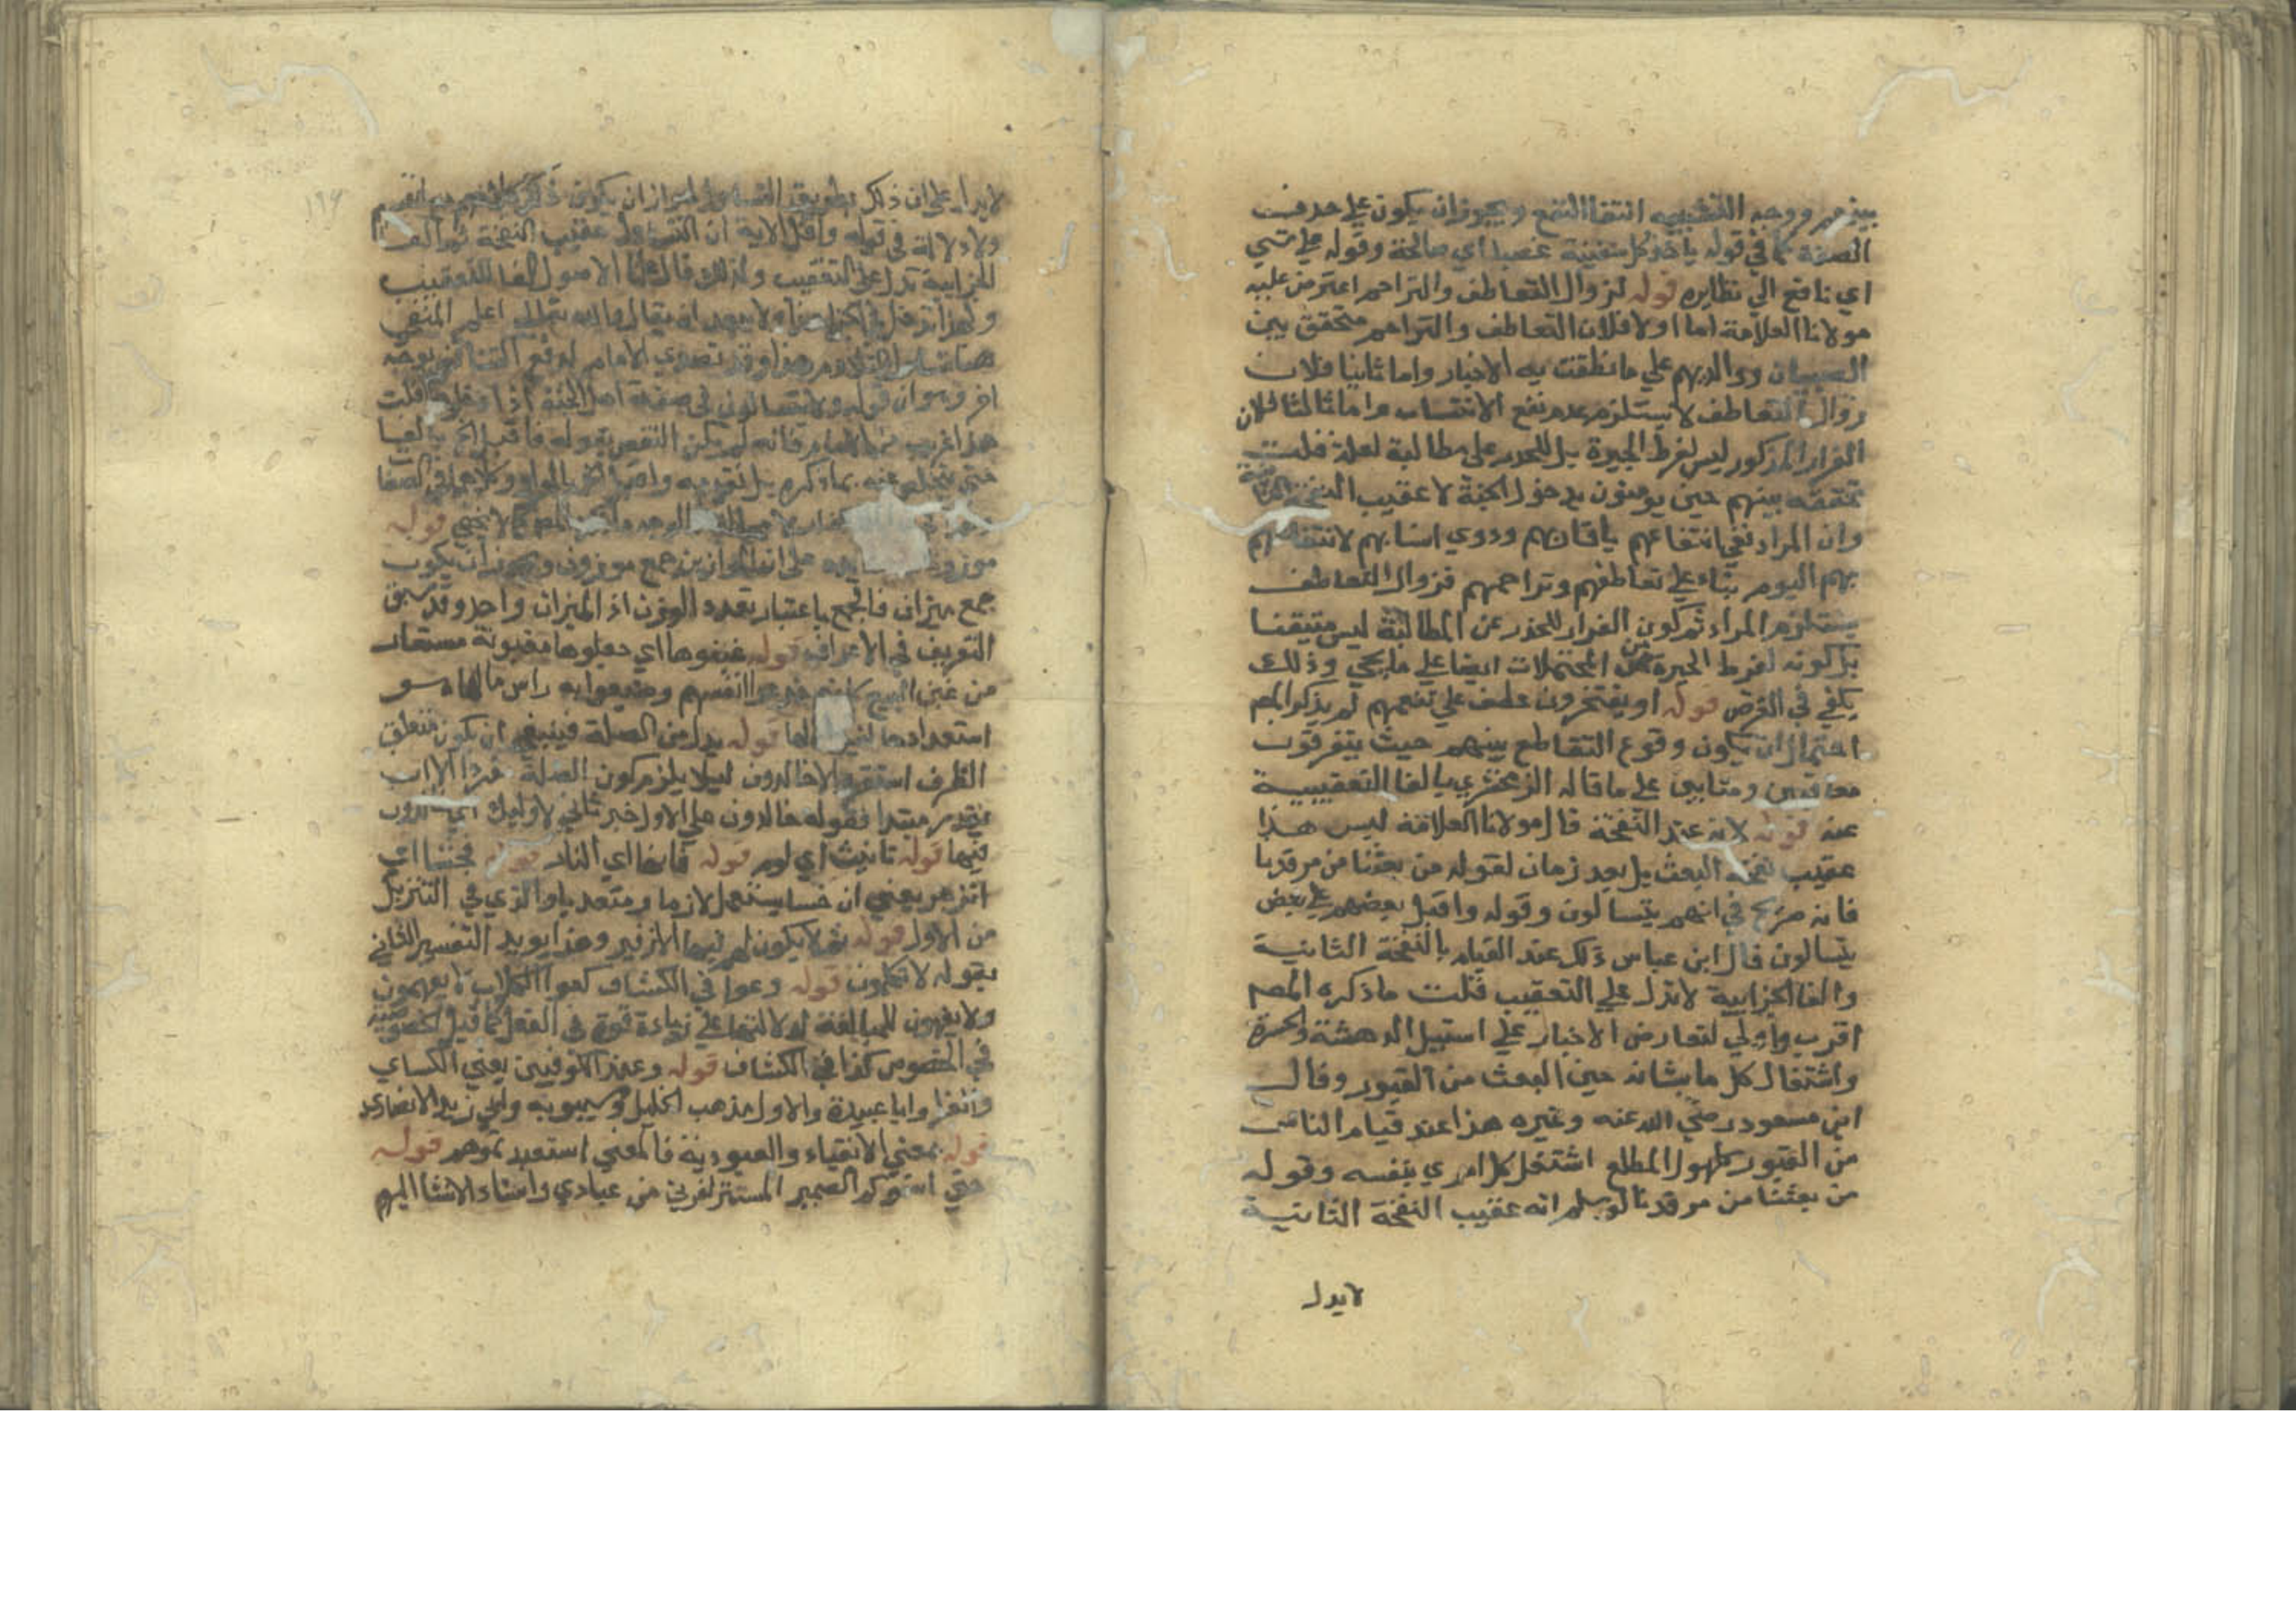 بينهم ووجه التشبيه انتفا النفع ويجوز ان يكون علي حذف
الصفة كما في قوله ياخذ كل سفينة غصبا اي صالحة وقوله علي شي
اي نافع الي نظايره قوله لزوال التعاطف والتراحم اعترض عليه
مولانا العلامة اما اولا فلان التعاطف والتراحم متحقق بين
الصبيان ووالديهم علي ما نطقت به الاخبار واما ثانيا فلان
زوال التعاطف لا يستلزم عدم نفع الانتساب واما ثالثا فلان
الفرار المذكور ليس لفرط الحيرة بل للحذر علي مطالبة لعلة قلت
تحققه بينهم حين يومرون بدخول الجنة لا عقيب النفخة الثانية
وان المراد نفي انتفاعهم باقاربهم وذوي انسابهم لانتفاعهم
بهم اليوم بناء علي تعاطفهم وتراحمهم فزوال التعاطف
يستلزم المراد ثم كون الفرار للحذر عن المطالبة ليس متيقنا
بل كونه لفرط الحيرة من المحتملات ايضا علي ما يجي وذلك
يكفي في الغرض قوله او يفتخرون عطف علي تنفعهم لم يذكر المص
احتمال ان يكون وقوع التقاطع بينهم حيث يتفرقون
معاقبين ومثابين علي ما قاله الزمخشري بالفا التعقيبية
عنه قوله لانه عند النفخة قال مولانا العلامة ليس هذا
عقيب نفخة البعث بل بعد زمان لقوله من بعثنا من مرقدنا
فانه صريح في انهم يتسالون وقوله واقبل بعضهم علي بعض
يتسالون قال ابن عباس ذلك عند القيام بالنفخة الثانية
والفا الجزايية لا تدل علي التعقيب قلت ما ذكره المص
اقرب واولي لتعارض الاخبار علي استيل الدهشة والحيرة
واشتغال كل ما بشانه حين البعث من القبور وقال
ابن مسعود رضي الله عنه وغيره هذا عند قيام الناس
من القبور كلهول المطلع اشتغل كل امري بنفسه وقوله
من بعثنا من مرقدنا لو سلم انه عقيب النفخة الثانية
لا يدل
١٩٦
لا يدل علي ان ذلك بطريق التساول لجواز ان يكون ذكر
ولا دلالة في قوله واقبل الاية ان التساول عقيب النفخة ثم الفا
الجزايية تدل علي التعقيب ولذلك قال علما الاصول الفا للتعقيب
ولهذا تدخل في الجزا
هذا وقد تصدي الامام لدفع التناقض بوجه
اخر وهو ان قوله ولا يتسالون في صفة اهل الجنة اذا دخلوها قلت
هذا غريب من الامام فانه لم يكن النقض بقوله فاقبل الخ بالفا
حتي يتخلص عنه بما ذكره بل بقوله واقبل الخ بالواو وكلاهما في الصفا
كما لا يخفي قوله
علي ان الموازين جمع موزون ويجوز ان يكون
جمع ميزان فالجمع باعتبار تعدد الوزن اذ الميزان واحد وقد سبق
التعريف في الاعراف قوله غبنوها اي جعلوها مغبونة مستعار
من غبن البيع كانهم خدعوا انفسهم وضيعوا به راس مالها وهو
استعدادها لنيل كمالها قوله بدل من الصلة فينبغي ان يكون متعلق
الظرف استقروا لا خالدون ليلا يلزم كون الصلة مفردا الا ان
يقدر مبتدا فقوله خالدون علي الاول خبر ثاني لاوليك اي خالدون
فيها قوله تانيث اي لوم قوله فانها اي النار قوله فخسا اي
انزجر يعني ان خسا يستعمل لازما ومتعديا والذي في التنزيل
من الاول قوله ثم لا يكون لهم فيها الا زفير وهذا يويد التفسير الثاني
بقوله لا تكلمون قوله وعوا في الكشاف كعوا الكلاب لا يفهمون
ولا يفهمون للمبالغة لدلالتها علي زيادة قوة في الفعل كما قيل الخصوصية
في الخصوص كذا في الكشاف قوله وعند الكوفيين يعني الكساي
والفرا وابا عبيدة والاول مذهب الخليل وسيبويه وابي زيد الانصاري
قوله بمعني الانقياء والعبودية فالمعني استعبدتموهم قوله
حتي انسوكم الضمير المستتر لفريق من عبادي واسناد الانسا اليهم